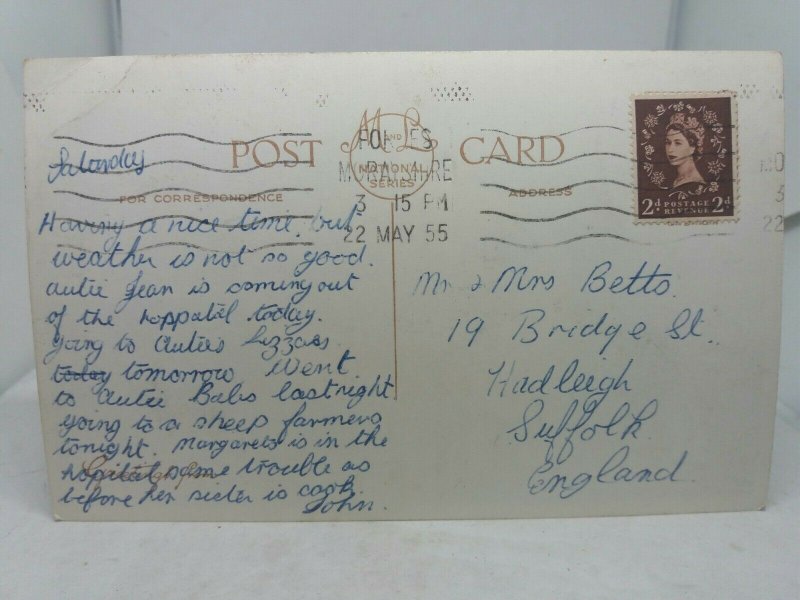 POST CARD
M AND L
NATIONAL
SERIES
FOR CORRESPONDENCE
ADDRESS
MORAYSHIRE
3 15 PM
22 MAY 55
2d POSTAGE 2d
REVENUE
Saturday
Having a nice time. but
weather is not so good.
autie Jean is coming out
of the hoppatel today.
going to Auties Lizzies
today tomorrow Went
to autie Babs last night
going to a sheep farmers
tonight. Margarets is in the
hopital same trouble as
before her sister is cook.
John.
Mr & Mrs Betts.
19 Bridge St.
Hadleigh
Suffolk.
England.